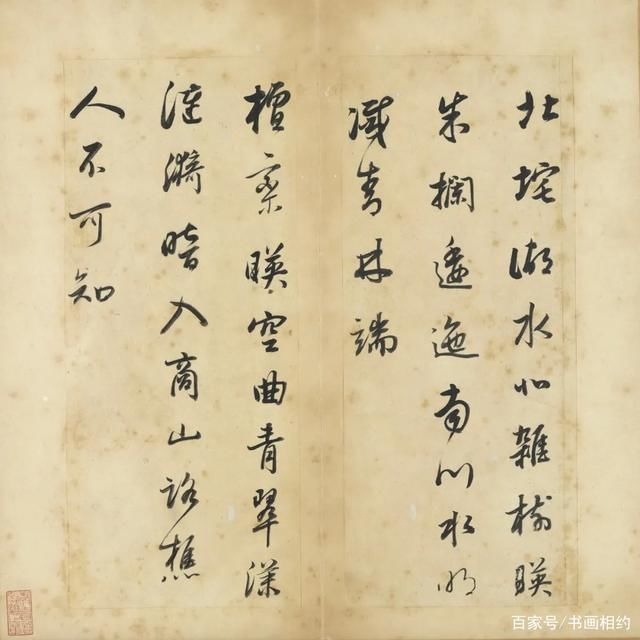 北垞湖水北雜樹暎
朱欄逶迤南川水明
滅青林端
檀欒暎空曲青翠漾
漣漪暗入商山路樵
人不可知
百家号/书画相约